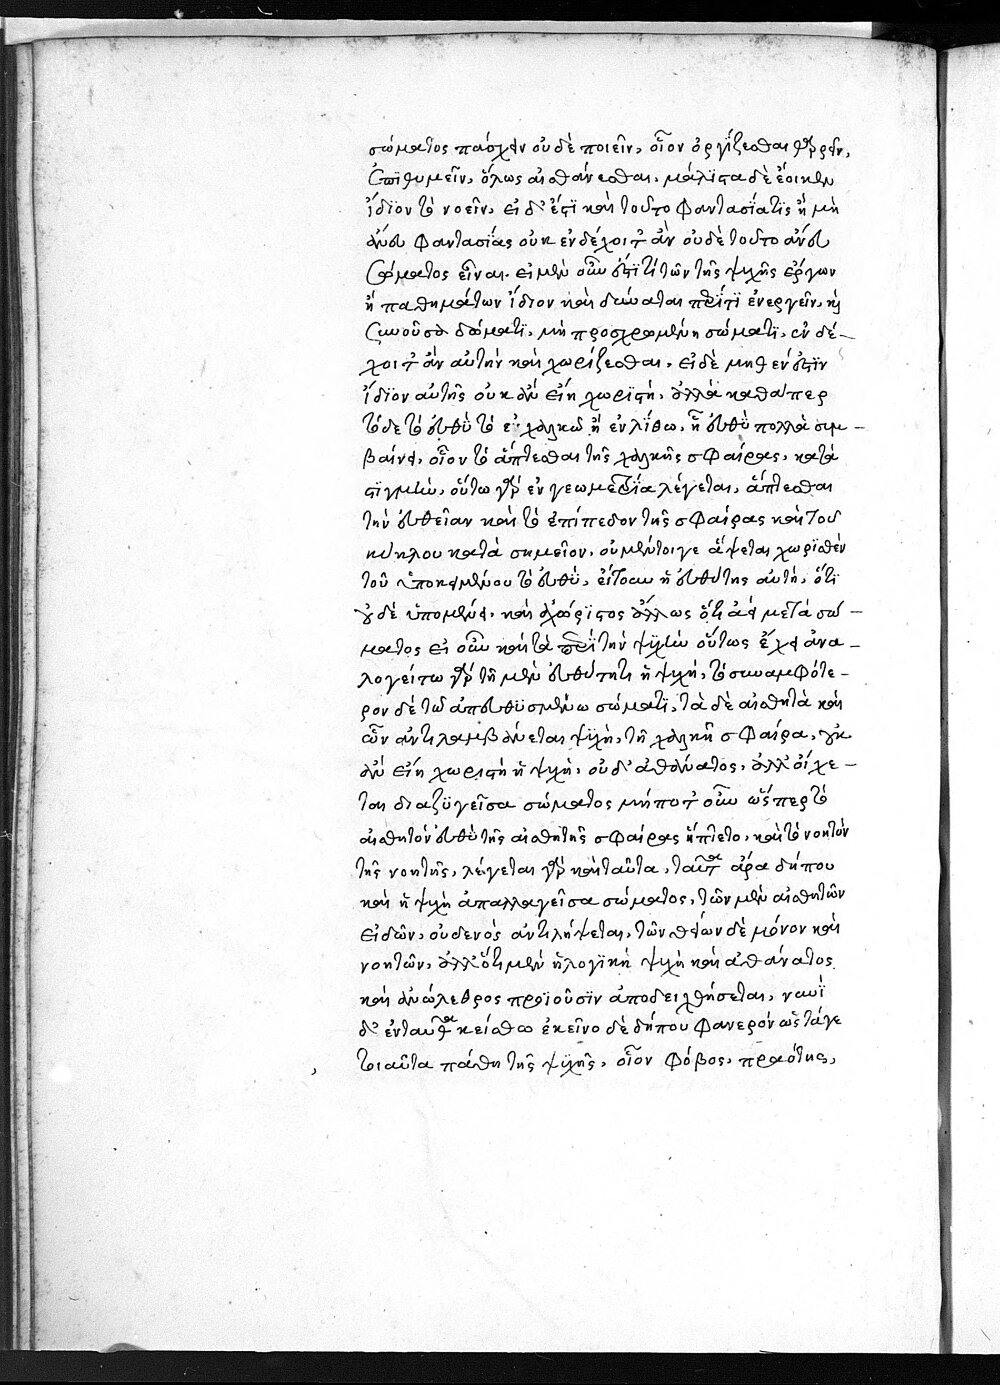 σώματος πάσχειν οὐδὲ ποιεῖν, οἷον ὀργίζεσθαι θαρρεῖν,
ἐπιθυμεῖν, ὅλως αἰσθάνεσθαι. μάλιστα δὲ ἔοικεν
ἴδιον τὸ νοεῖν. εἰ δ' ἐστὶ καὶ τοῦτο φαντασία τις ἢ μὴ
ἄνευ φαντασίας οὐκ ἐνδέχοιτ' ἂν οὐδὲ τοῦτο ἄνευ
σώματος εἶναι. εἰ μὲν οὖν ἐστί τι τῶν τῆς ψυχῆς ἔργων
ἢ παθημάτων ἴδιον καὶ δύναται περί τι ἐνεργεῖν, μὴ
συνοῦσα σώματι, μὴ προσχρωμένη σώματι, ἐνδέ-
χοιτ' ἂν αὐτὴν καὶ χωρίζεσθαι, εἰ δὲ μηθέν ἐστιν
ἴδιον αὐτῆς οὐκ ἂν εἴη χωριστή, ἀλλὰ καθάπερ
τόδε τὸ εὐθὺ τὸ ἐν χαλκῷ ἢ ἐν λίθῳ, ᾗ εὐθὺ πολλὰ συμ-
βαίνει, οἷον τὸ ἅπτεσθαι τῆς χαλκῆς σφαίρας, κατὰ
στιγμὴν, οὕτω γὰρ ἐν γεωμετρίᾳ λέγεται, ἅπτεσθαι
τὴν εὐθεῖαν καὶ τὸ ἐπίπεδον τῆς σφαίρας καὶ τοῦ
κύκλου κατὰ σημεῖον, οὐ μέντοι γε ἅψεται χωρισθὲν
τοῦ ὑποκειμένου τὸ εὐθύ, εἴτουν ἡ εὐθύτης αὐτή, ὅτι
οὐδὲ ὑπομένει, καὶ ἀχώριστος ἄλλως ὅτι ἀεὶ μετὰ σώ-
ματος εἰ οὖν καὶ τὰ περὶ τὴν ψυχὴν οὕτως ἔχει ἀνα-
λογείτω γὰρ τῇ μὲν εὐθύτητι ἡ ψυχή, τὸ συναμφότε-
ρον δὲ τῷ ἀπευθυσμένῳ σώματι, τὰ δὲ αἰσθητὰ καὶ
ὧν ἀντιλαμβάνεται ψυχὴ, τῇ χαλκῇ σφαίρᾳ, οὐκ
ἂν εἴη χωριστὴ ἡ ψυχὴ, οὐδ' ἀθάνατος, ἀλλ' οἴχε-
ται διαζυγεῖσα σώματος μήποτ' οὖν ὥσπερ τὸ
αἰσθητὸν εὐθὺ τῆς αἰσθητῆς σφαίρας ἥπτετο, καὶ τὸ νοητὸν
τῆς νοητῆς, λέγεται γὰρ καὶ ταῦτα, ταύτῃ ἄρα δήπου
καὶ ἡ ψυχὴ ἀπαλλαγεῖσα σώματος, τῶν μὲν αἰσθητῶν
εἰδῶν, οὐδενὸς ἀντιλήψεται, τῶν θείων δὲ μόνον καὶ
νοητῶν, ἀλλ' ὅτι μὲν ἡ λογικὴ ψυχὴ καὶ ἀθάνατος
καὶ ἀνώλεθρος προϊοῦσιν ἀποδειχθήσεται, νυνὶ
δ' ἐνταῦθα κείσθω ἐκεῖνο δὲ δήπου φανερὸν ὡς τά γε
τοιαῦτα πάθη τῆς ψυχῆς, οἷον φόβος, πραότης,